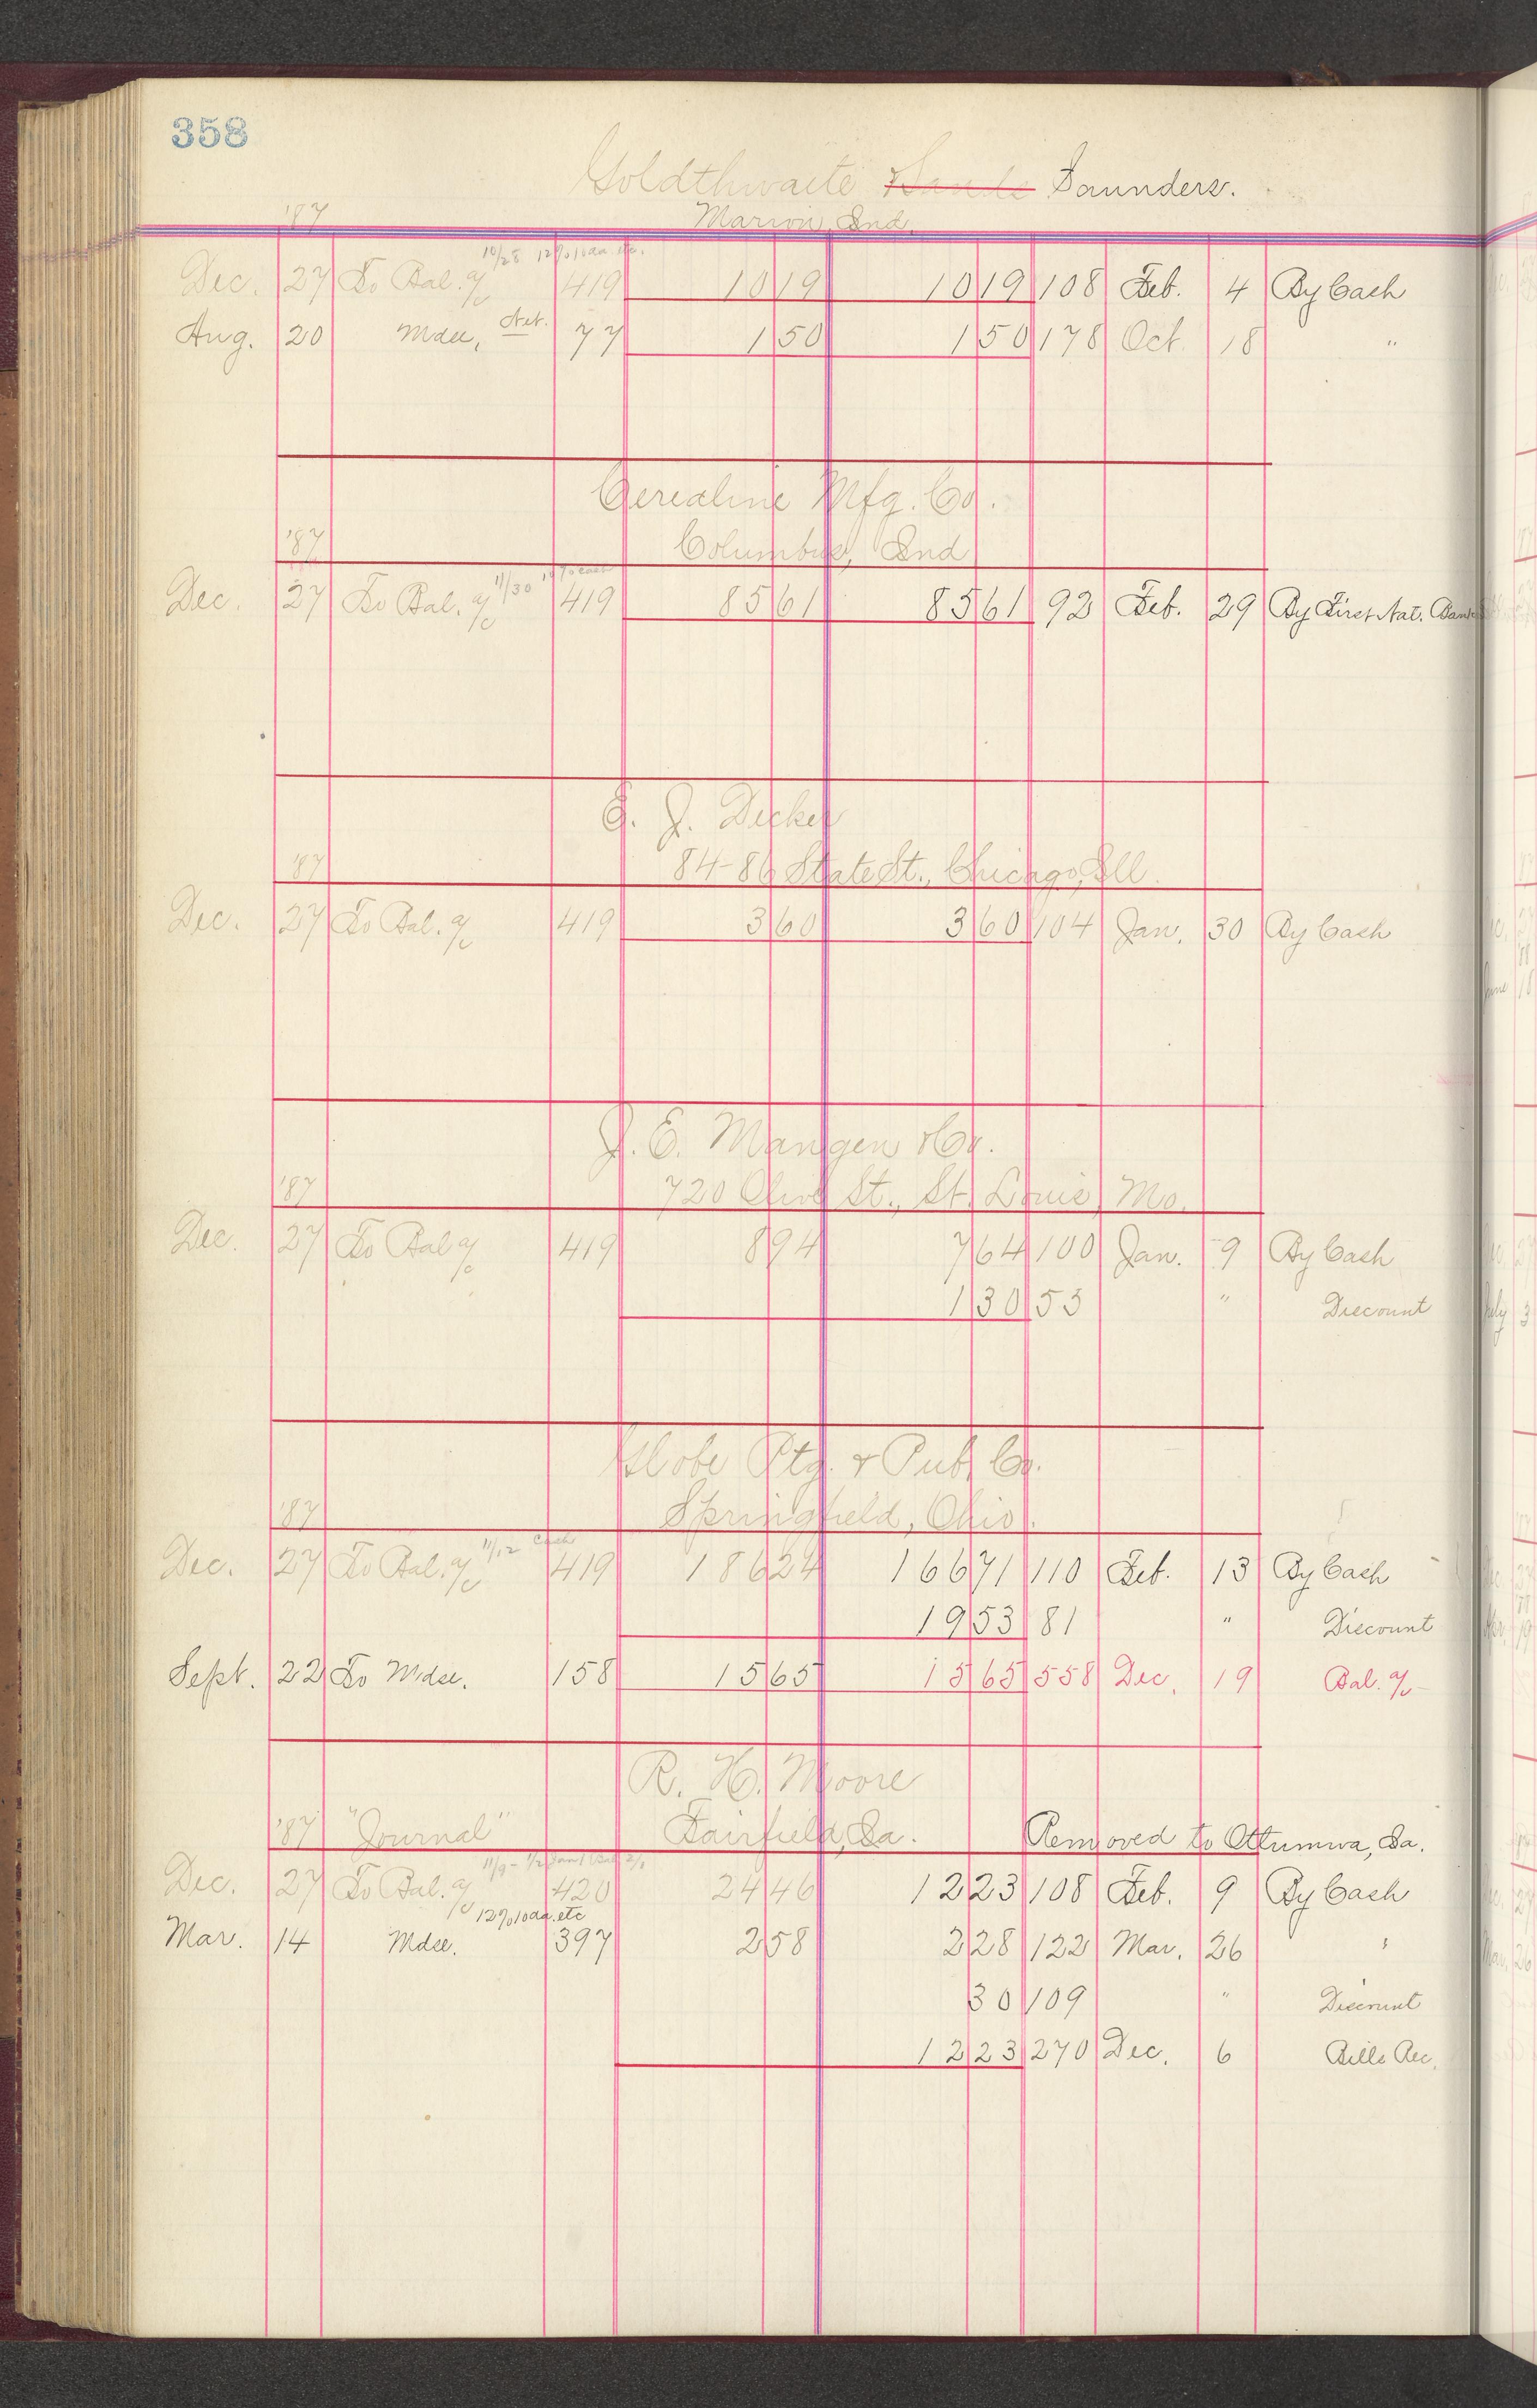 358
Goldthwaite & Sands Saunders.
'87 Marion, Ind.
10/28 12%10da. etc.
Dec. 27 To Bal. a/c 419 10 19 10 19 108 Feb. 4 By Cash
Aug. 20 Mdse, Net. 77 1 50 1 50 178 Oct. 18 "
Cerealine Mfg. Co.
'87 Columbus, Ind
Dec. 27 To Bal. a/c 11/30 419 85 61 85 61 92 Feb. 29 By First Nat. Bank
E. J. Decker
'87 84-86 State St., Chicago, Ill.
Dec. 27 To Bal. a/c 419 3 60 3 60 104 Jan. 30 By Cash
J. E. Mangen & Co.
'87 720 Olive St., St. Louis, Mo.
Dec. 27 To Bal a/c 419 8 94 7 64 100 Jan. 9 By Cash
1 30 53 " Discount
Globe Ptg. & Pub. Co.
'87 Springfield, Ohio.
Dec. 27 To Bal. a/c 11/12 Cash 419 186 24 166 71 110 Feb. 13 By Cash
19 53 81 " Discount
Sept. 22 To Mdse. 158 15 65 15 65 558 Dec. 19 Bal. a/c
R. H. Moore
'87 "Journal" Fairfield, Ia. Removed to Ottumwa, Ia.
Dec. 27 To Bal. a/c 420 24 46 12 23 108 Feb. 9 By Cash
12%10da. etc
Mar. 14 Mdse. 397 2 58 2 28 122 Mar. 26 "
30 109 " Discount
12 23 270 Dec. 6 Bills Rec.